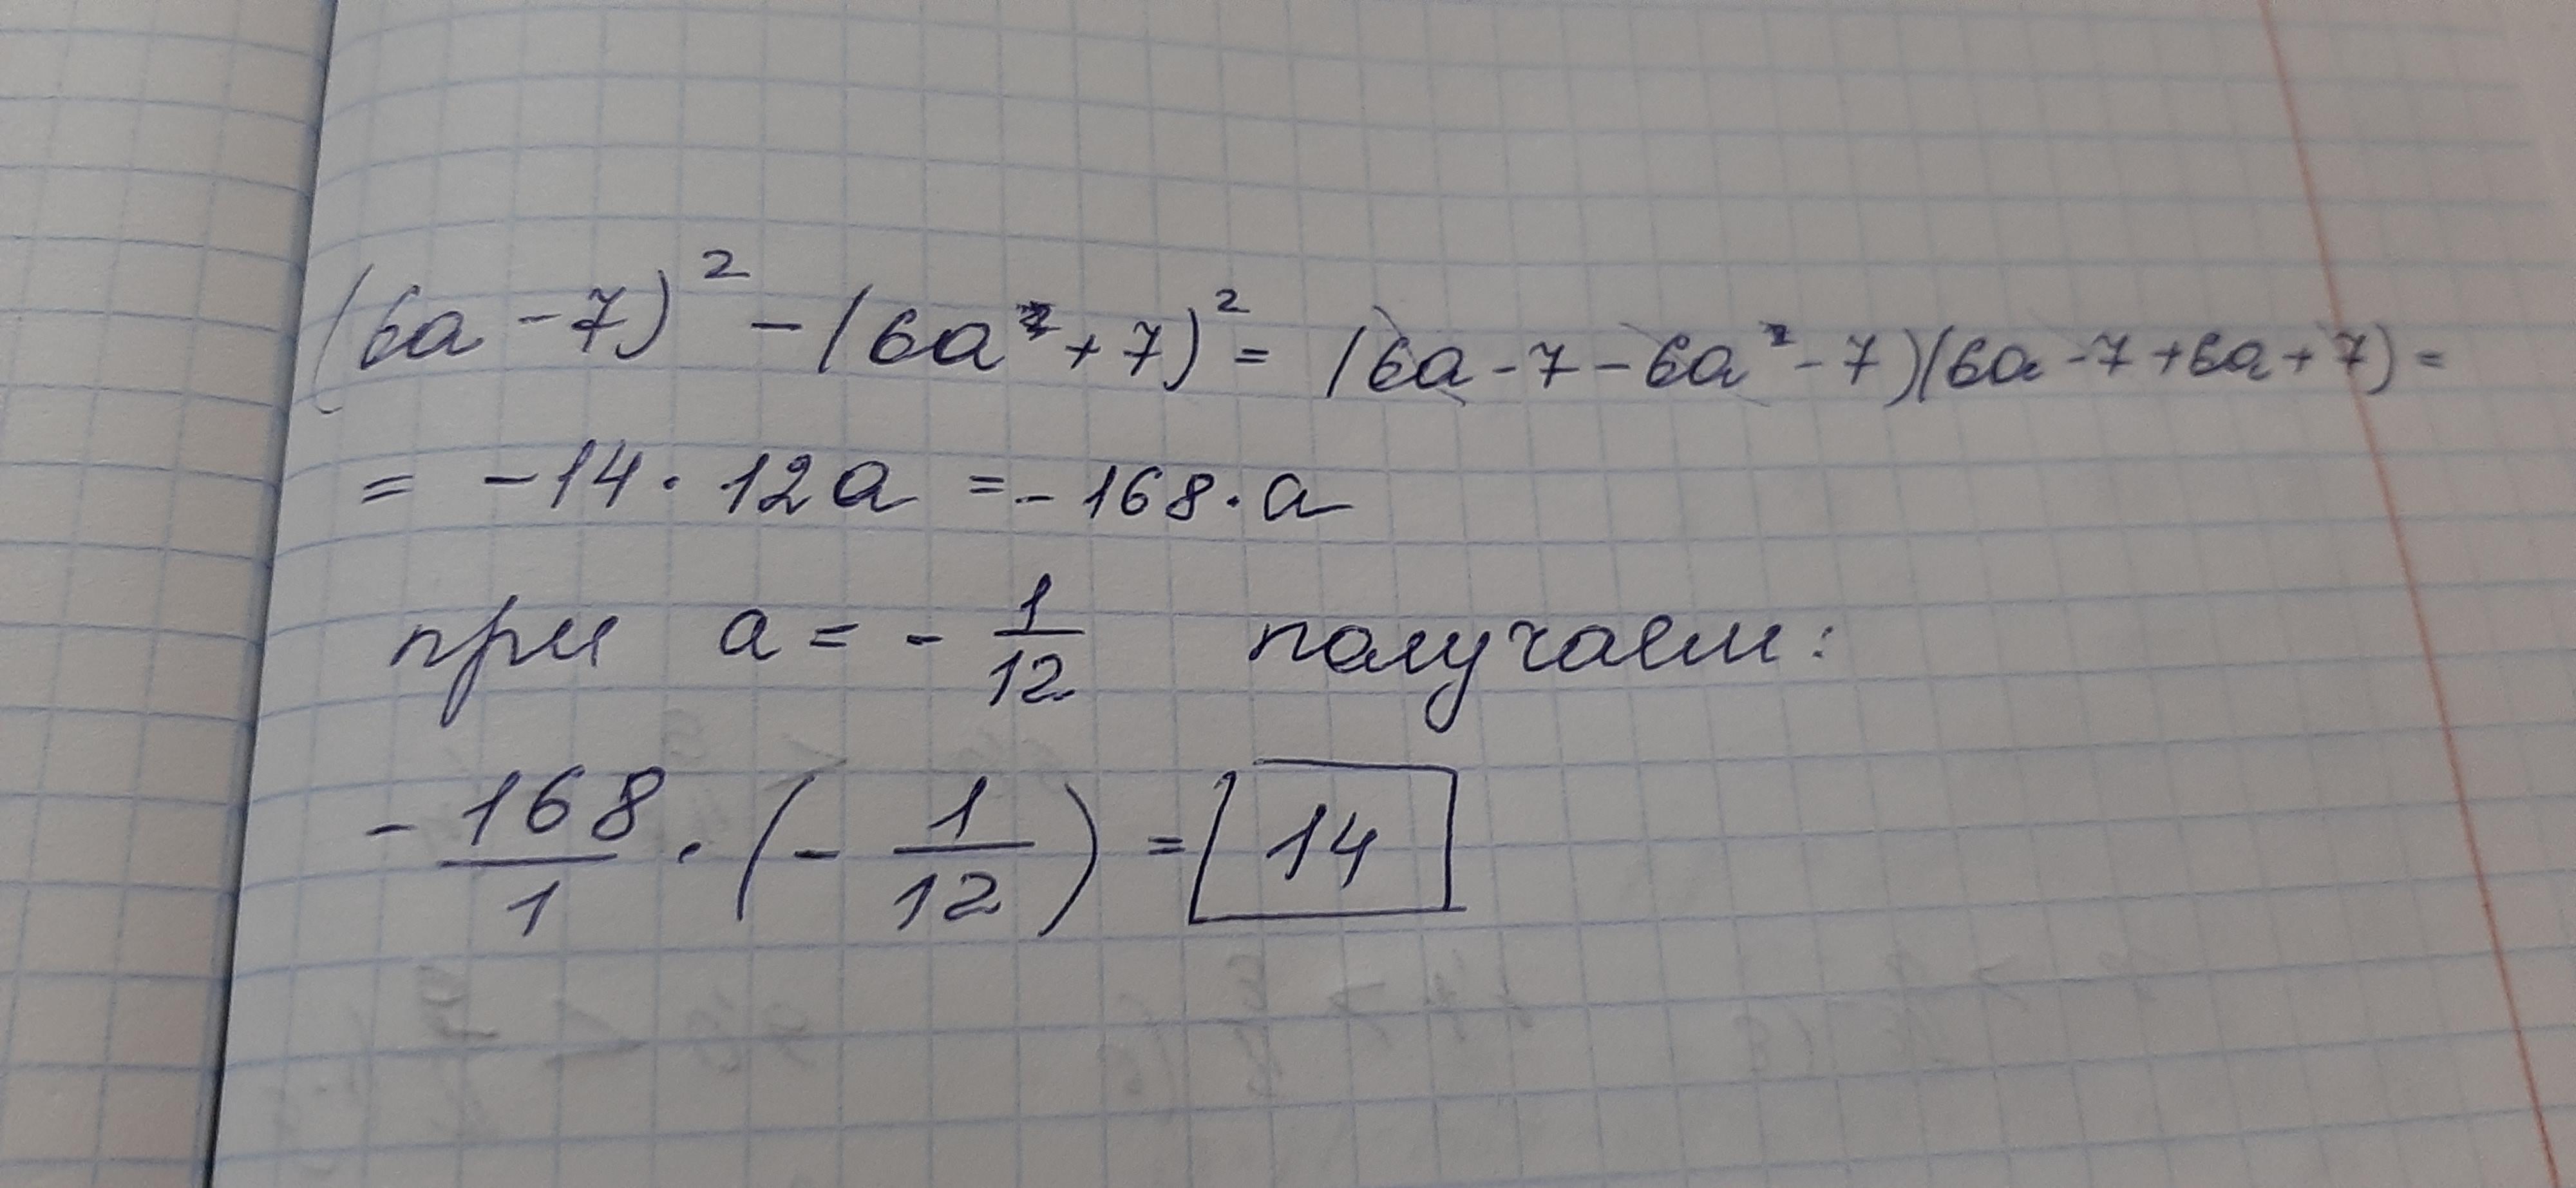 (6a - 7)² - (6a + 7)² = (6a - 7 - 6a - 7)(6a - 7 + 6a + 7) =
= -14 · 12a = - 168 · a
при a = - 1/12 получаем:
- 168/1 · (- 1/12) = 14